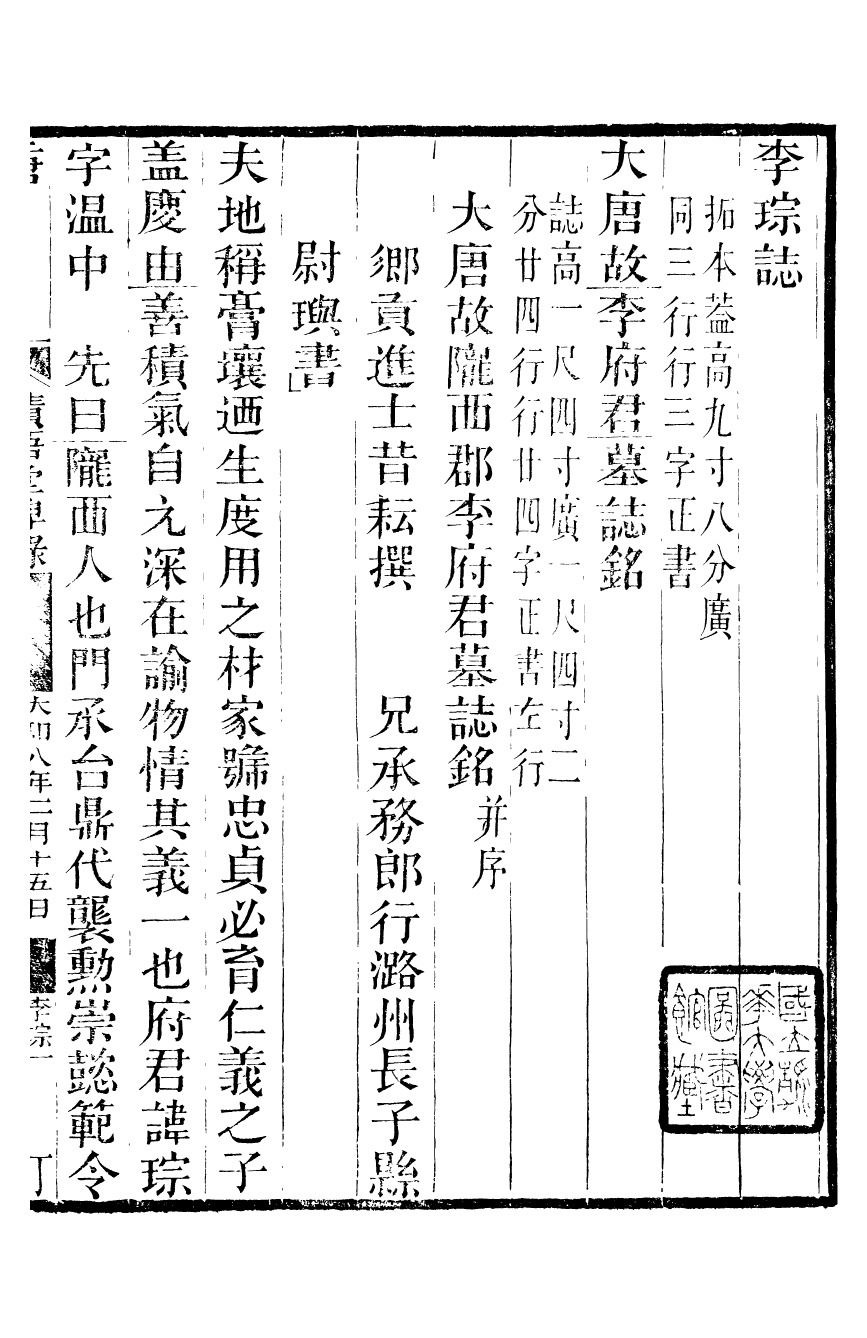 李琮誌
拓本葢高九寸八分廣
同三行行三字正書
大唐故李府君墓誌銘
誌高一尺四寸廣一尺四寸二
分廿四行行廿四字正書左行
大唐故隴西郡李府君墓誌銘并序
鄉貢進士昔耘撰　兄承務郎行潞州長子縣
尉璵書
夫地稱膏壤迺生度用之材家號忠貞必育仁義之子
盖慶由善積氣自元深在諭物情其義一也府君諱琮
字温中　先曰隴西人也門承台鼎代襲勲崇懿範令
大和八年二月十五日　李琮一
國立清
華大學
圖書
館藏